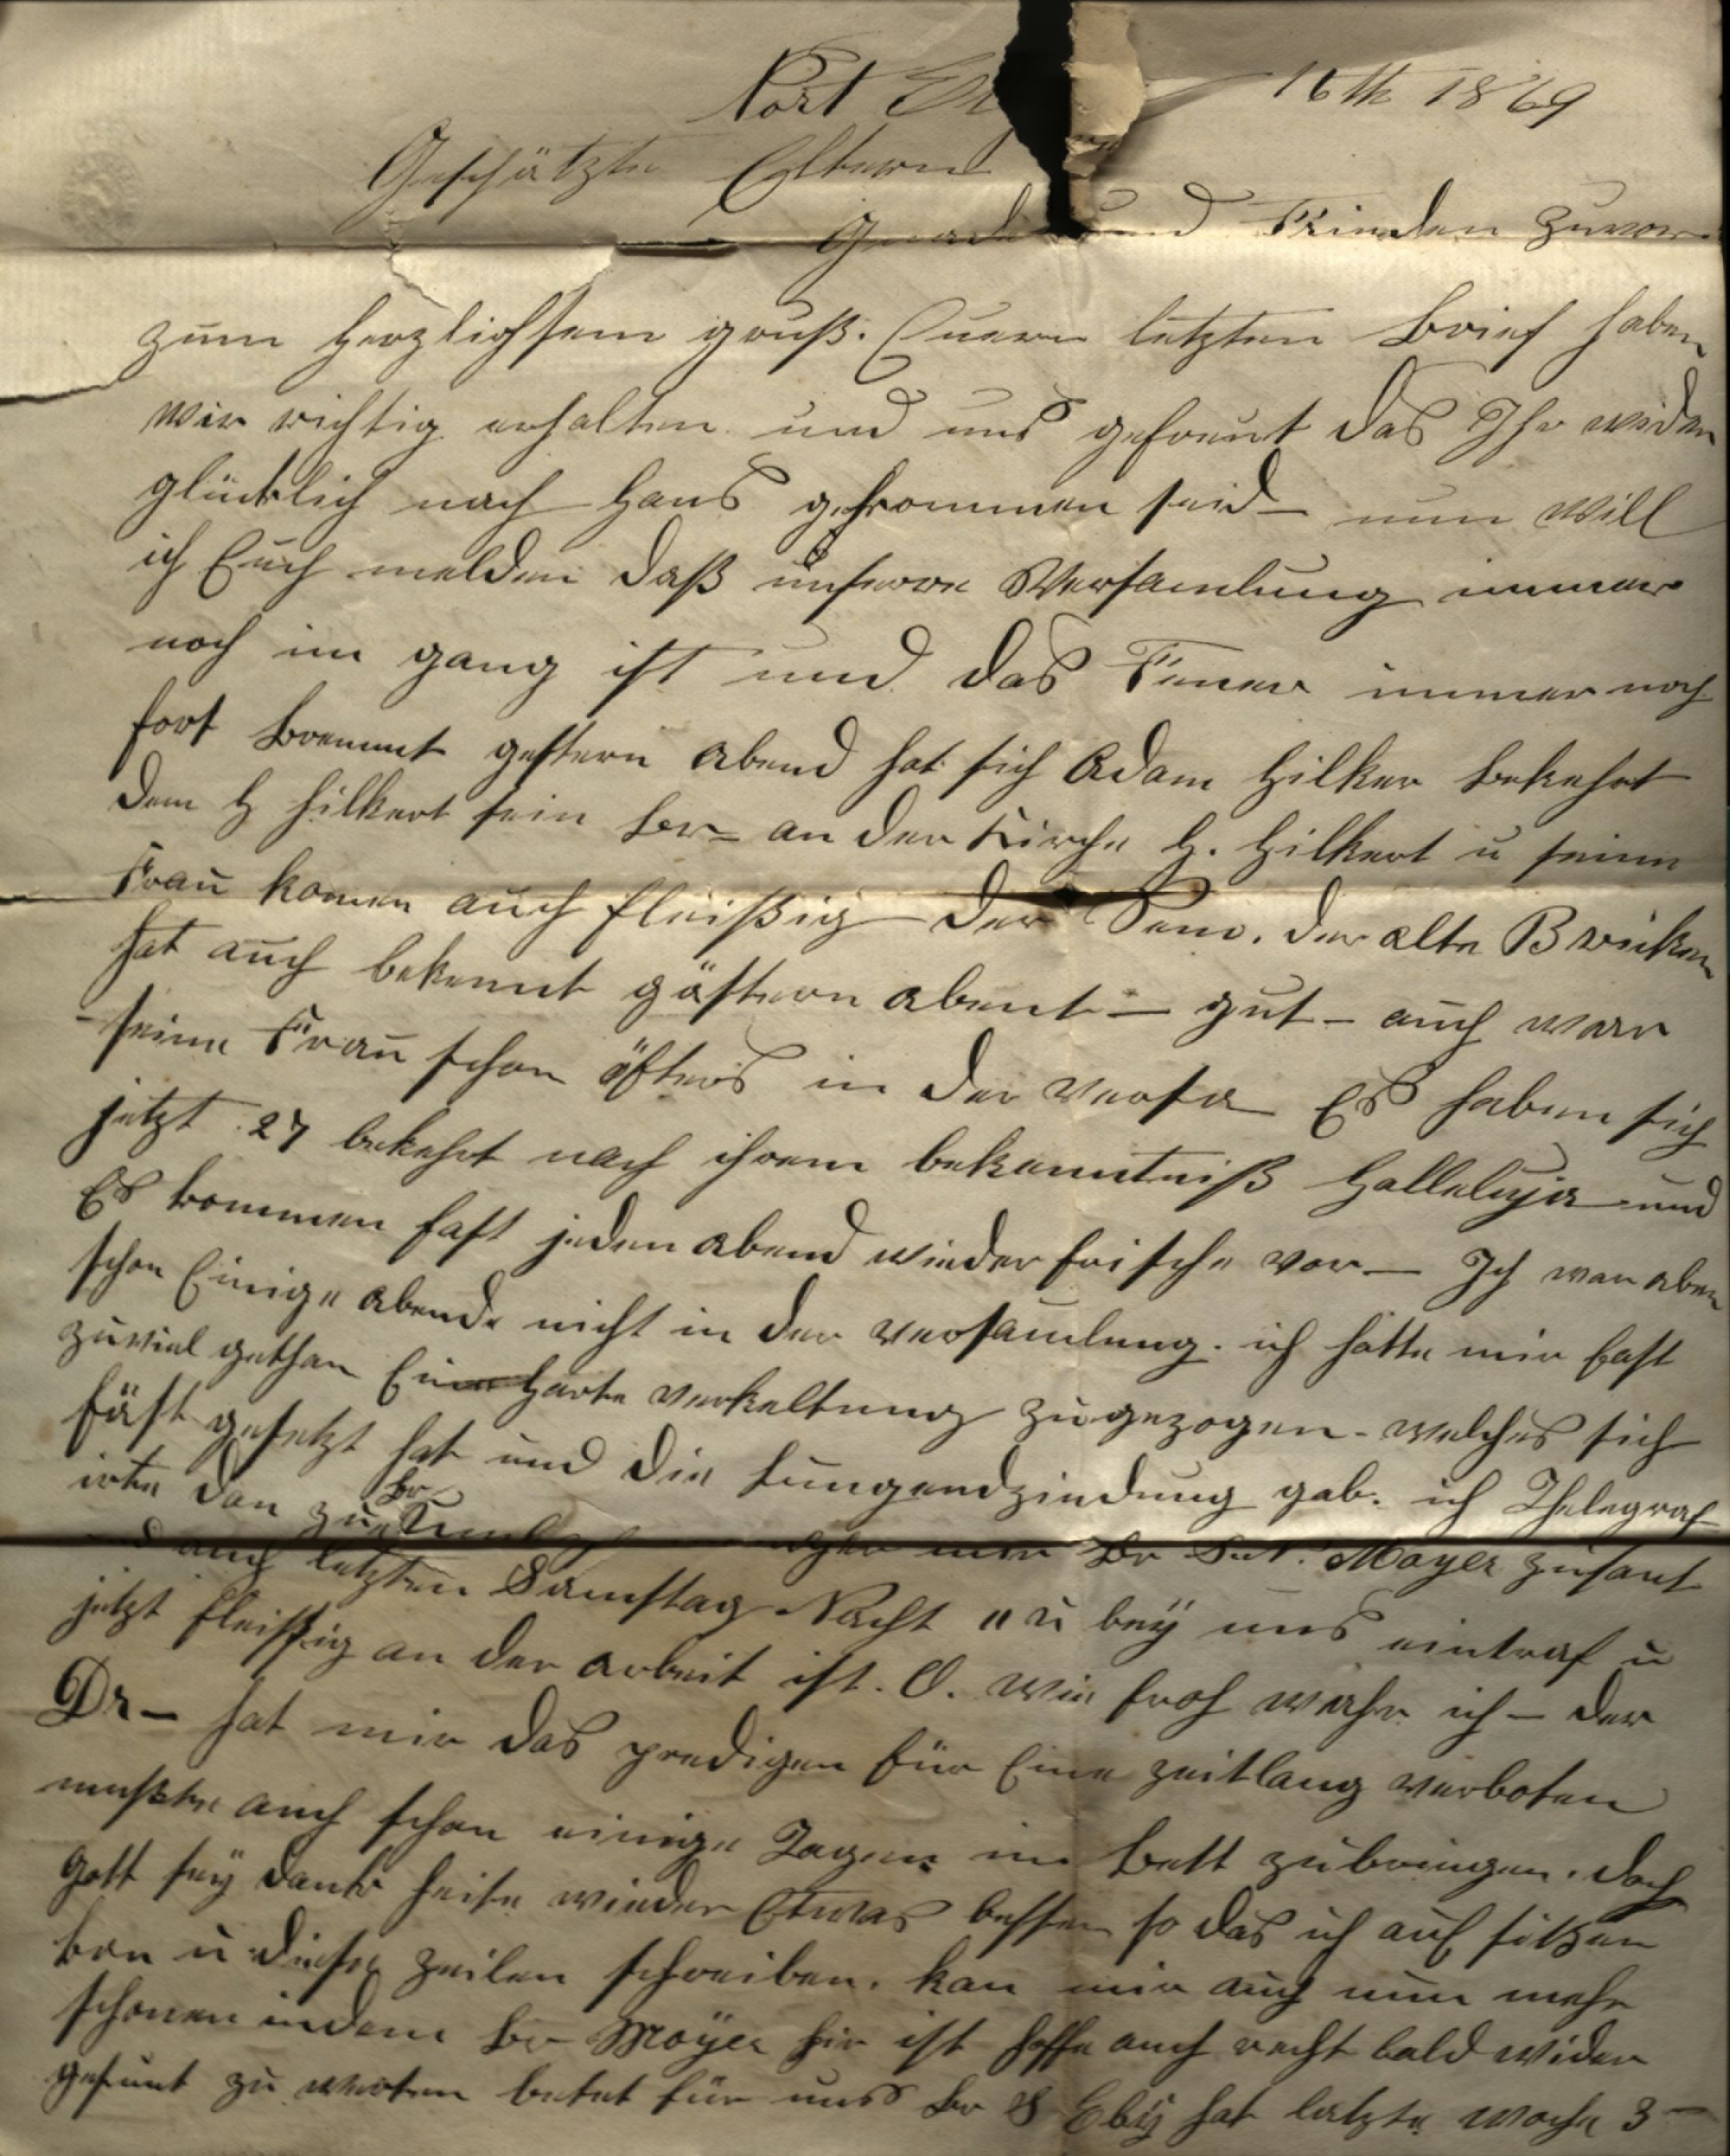 Port El 16th 1869
Geschätzte Eltern
Gnade und Frieden zuvor
zum herzlichsem gruß. Euern letzten Brief haben
wir richtig erhalten und uns gefreut das Ihr wider
glücklich nach Haus gekommen seid – nun will
ich Euch melden daß unsere Versamlung immer
noch im gang ist und das Feuer immer noch
fort brennt gestern abend hat sich Adam Hilker bekehrt
dem H Hilkert sein br– an der Kirche H. Hilkert u seine
Frau komen auch fleißig der der alte Bricker
hat auch bekennt gästern abent – gut – auch war
seine Frau schon öfters in der versa Es haben sich
jetzt 27 bekehrt nach ihrem bekenntniß Halleluja und
Es kommen fast jeden abend wieder frische vor – Ich war aber
schon Einige abende nicht in der versamlung. ich hatte mir fast
zuviel gethan Eine harte verkeltung zugezogen – welches sich
fäst gesetzt hat und die Lungendzindung gab. ich Thelegraf
irte dan zu br
auch mir Br Mayer zusant
letzten Samstag Nacht " u bey uns eintraf u
jetzt fleißig an der arbeit ist. O. wie froh wahr ich – der
Dr – hat mir das predigen für Eine zeitlang verboten
mußte auch schon einige Tagen im bett zubringen. doch
Gott sey dank heite wieder Etwas besser so das ich auf sitzen
kan u diese zeilen schreiben. kan mir auch nun mehr
schonen indem br Moÿer hir ist hoffe auch recht bald wider
gesunt zu werten betet für uns br S Eby hat letzte woche 3 –